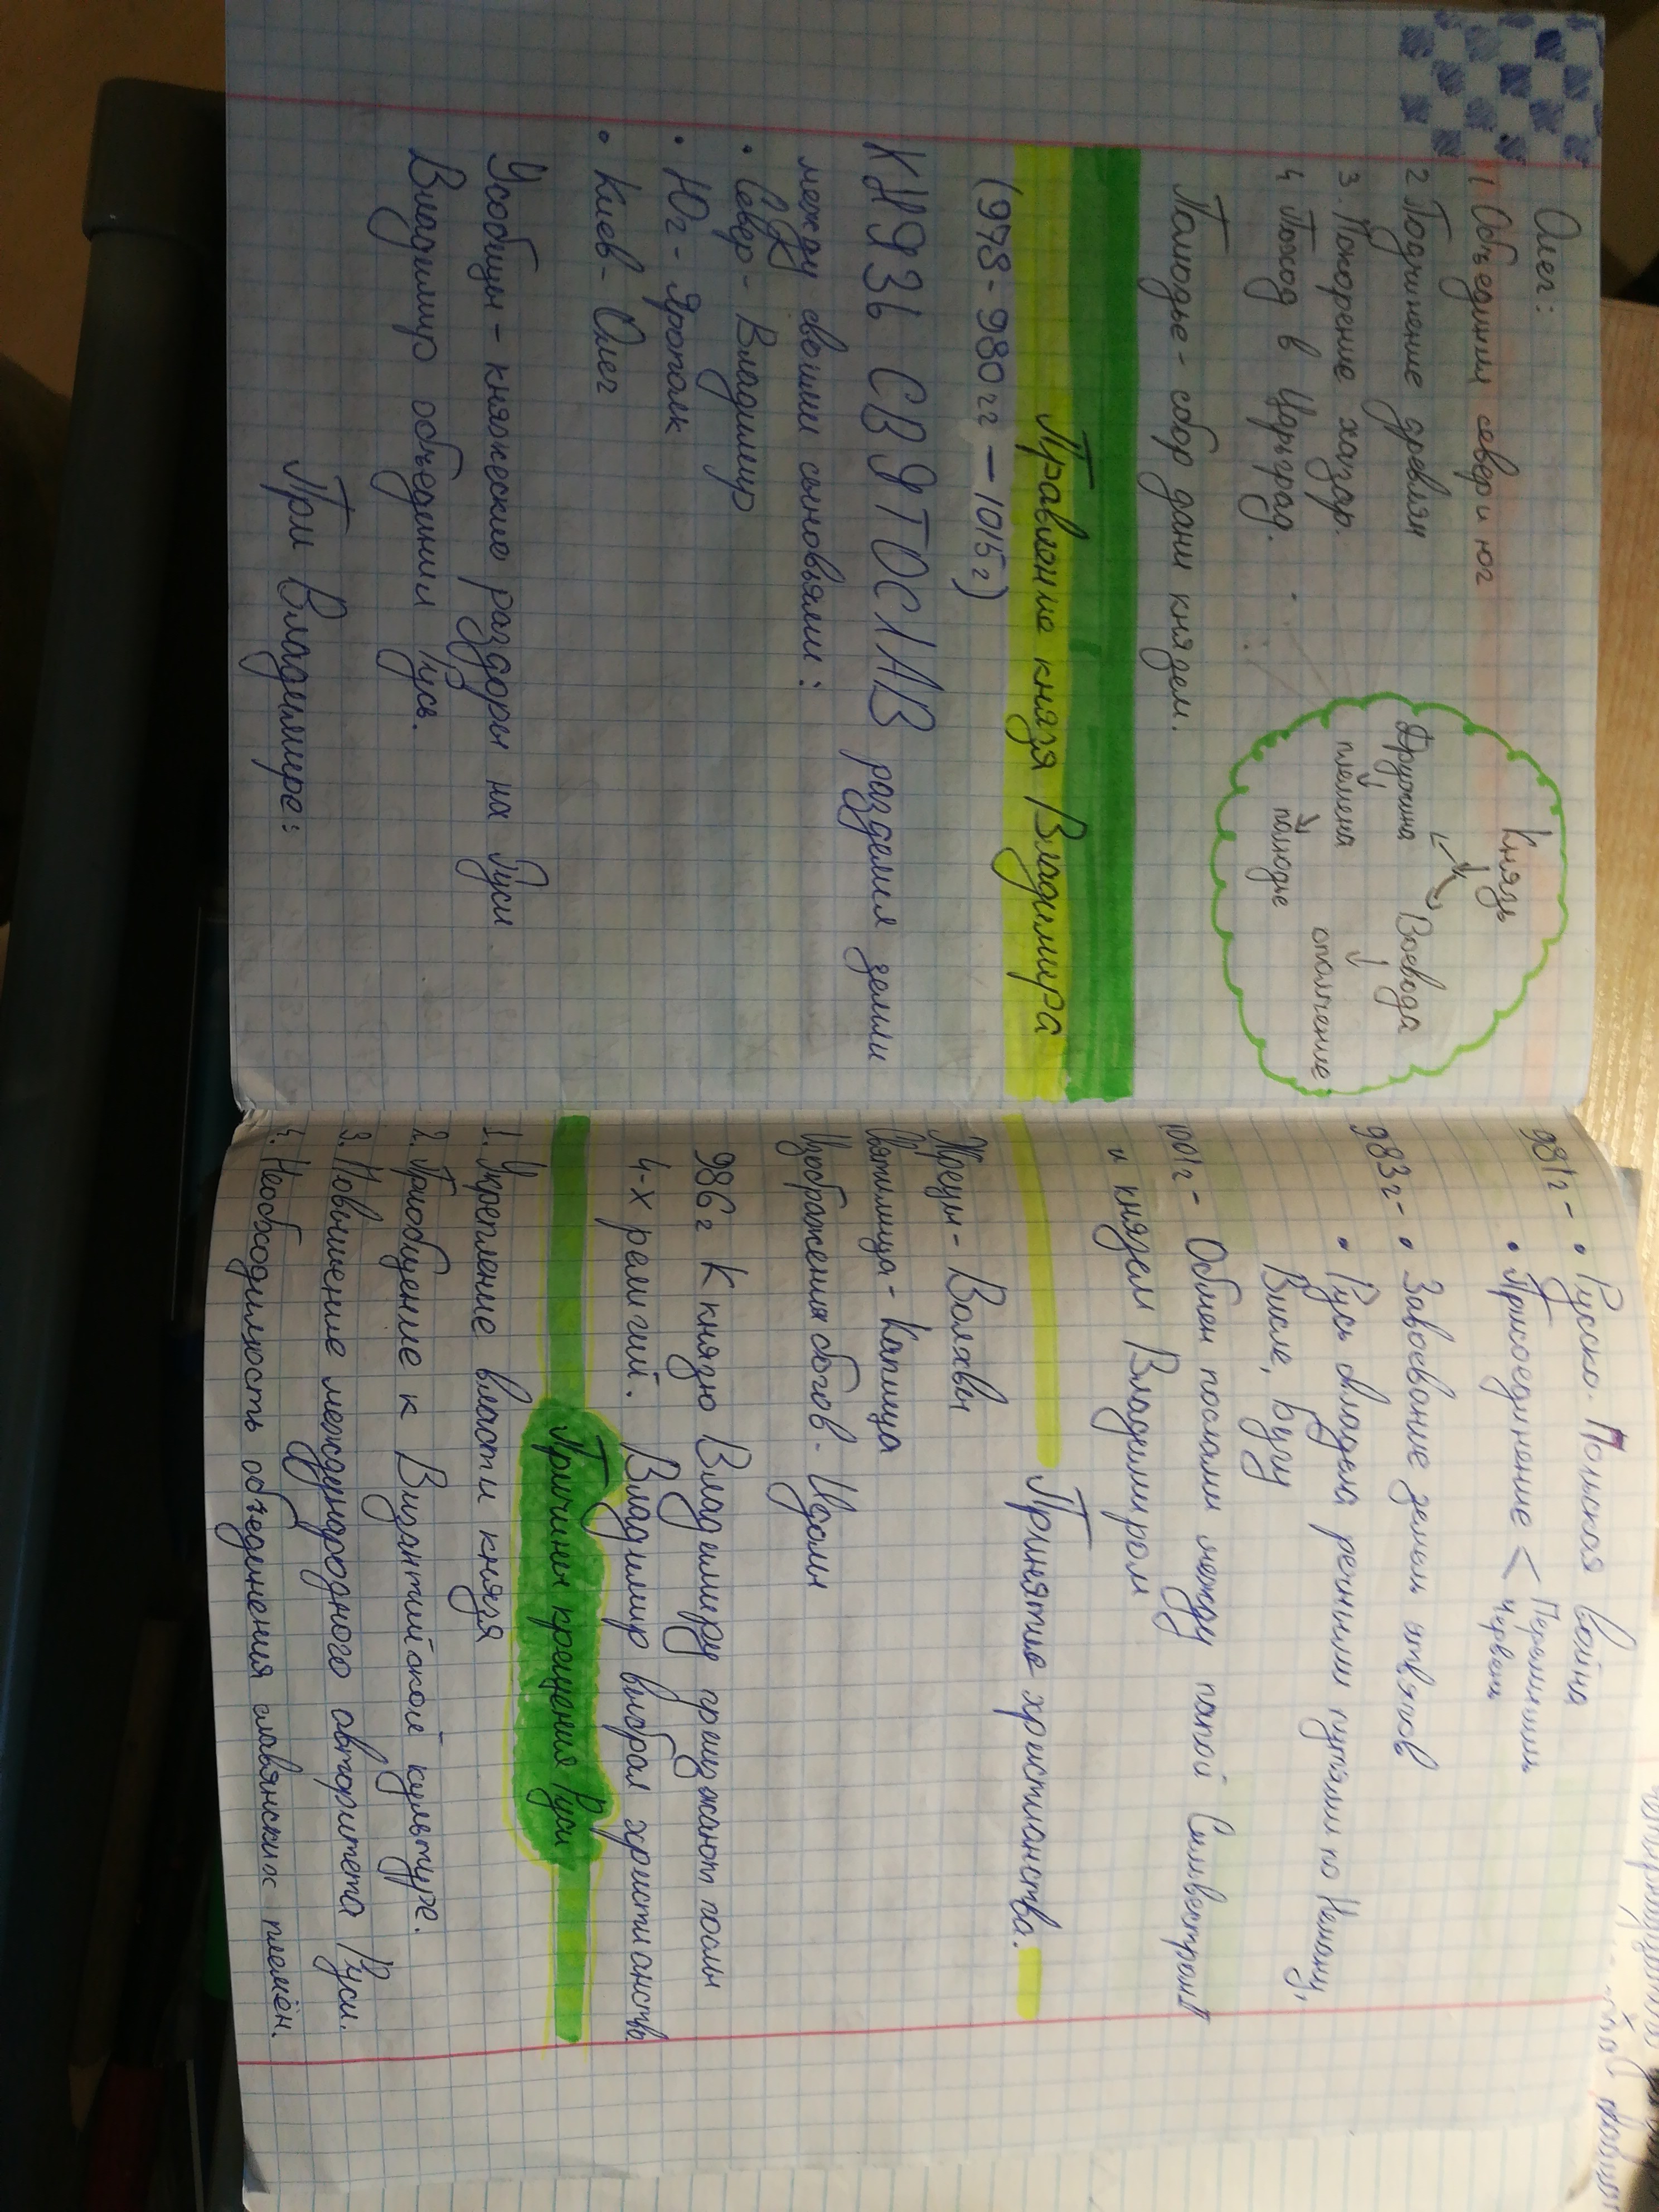 Олег:
1 Объединил север и юг
2 Подчинение древлян
3. Покорение хазар.
4 Поход в Царьград.
Полюдье - сбор дани князем.
Князь
Дружина Воевода
племена ополчение
полюдье
Правление князя Владимира
(978-980гг — 1015г)
КНЯЗЬ СВЯТОСЛАВ разделил земли
между своими сыновьями:
• Север - Владимир
• Юг - Ярополк
• Киев - Олег
Усобицы - княжеские раздоры на Руси
Владимир объединил Русь.
При Владимире:
981г - • Русско-Польская война
• Присоединение < Перемышль
Червень
983г - • Завоевание земель ятвягов
• Русь овладела речными путями по Неману,
Висле, Бугу
1001г - Обмен послами между папой Сильвестром
и князем Владимиром
Принятие христианства.
Жрецы - Волхвы
Святилища - Капища
Изображения богов - Идолы
986г К князю Владимиру приезжают послы
4-х религий. Владимир выбрал христианство
Причины крещения Руси
1. Укрепление власти князя
2. Приобщение к Византийской культуре.
3. Повышение международного авторитета Руси.
4. Необходимость объединения славянских племён.